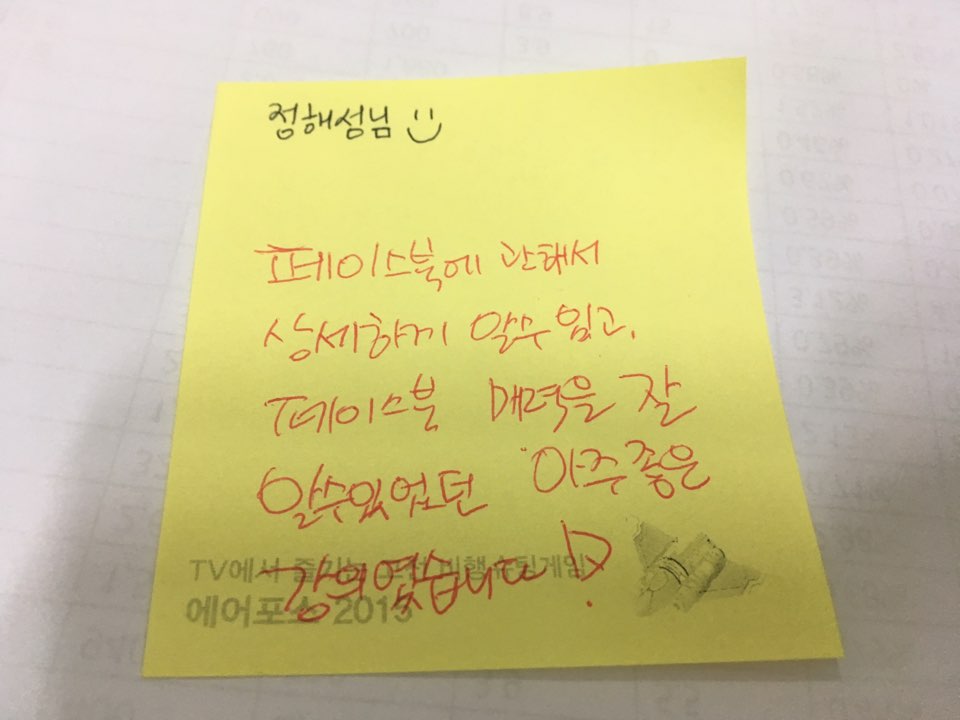 정해성님
페이스북에 관해서
상세하게 알수 있고,
페이스북 매력을 잘
알수있었던 아주좋은
강의였습니다!
TV에서 즐기는 모션 비행슈팅게임
에어포스 2015